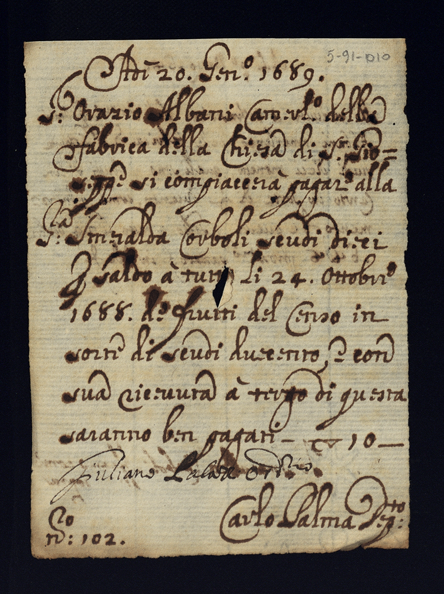 5-91-D10
Adi 20. Gen.º 1689.
S.r Orazio Albani Camerl.º della
fabrica della Chiesa di S. Gio=
seppe si compiacerà pagar.e alla
S.ra Smeralda Corboli scudi dieci
P saldo à tutti li 24. Ottobr.e
1688. de frutti del Censo in
sorte di scudi duecento, e con
sua ricevuta à tergo di questa
saranno ben pagati — 10 —
Giuliano
Carlo Palma Dep.to:
N.ro: 102.